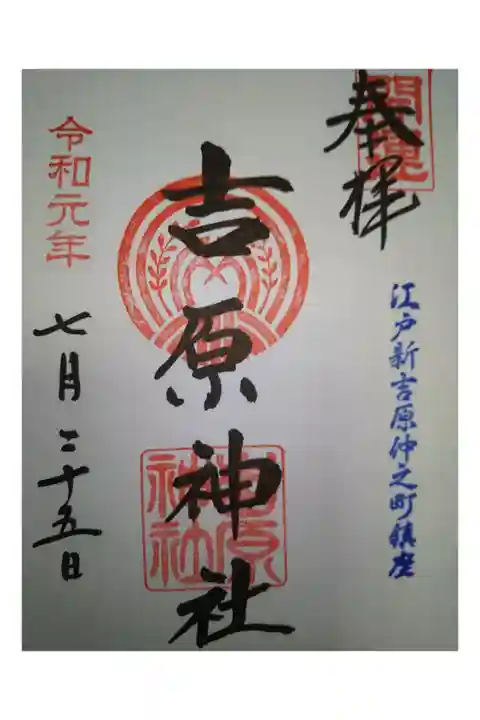 開運
奉拝
江戸新吉原仲之町鎮座
吉原神社
吉原神社
令和元年
七月二十五日